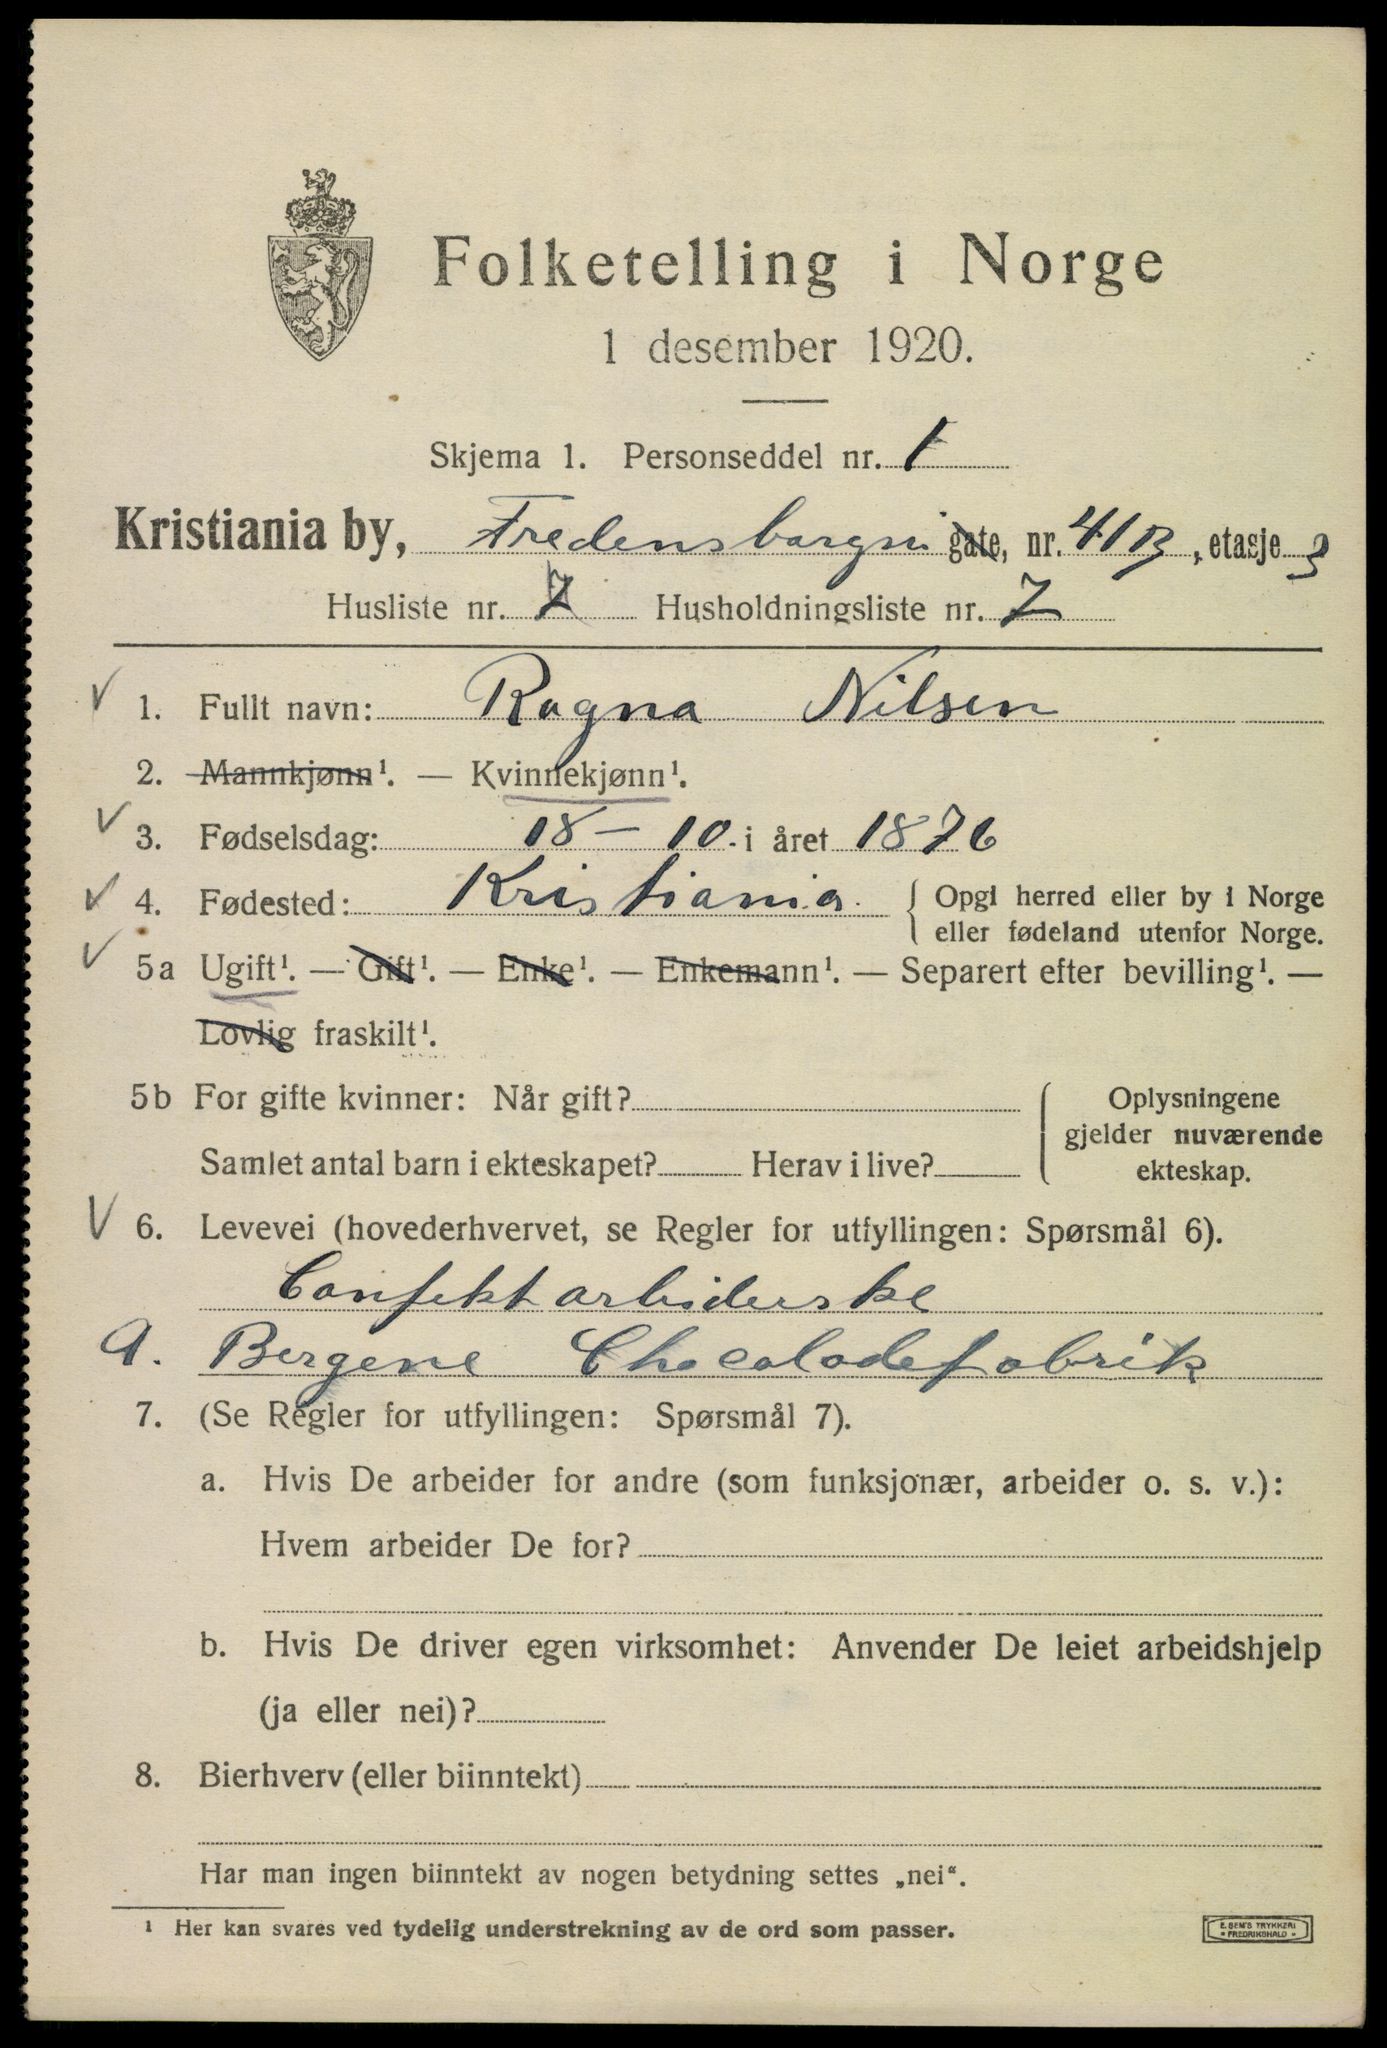 Folketelling i Norge
1 desember 1920.
Skjema 1. Personseddel nr. 1
Kristiania by, Fredensborgvei gate, nr. 41B, etasje 3
Husliste nr. 7 Husholdningsliste nr. 7
1. Fullt navn: Ragna Nilsen
2. Mannkjønn¹. — Kvinnekjønn¹.
3. Fødselsdag: 18 – 10. i året 1876
4. Fødested: Kristiania. { Opgi herred eller by i Norge
eller fødeland utenfor Norge.
5a Ugift¹. — Gift¹. — Enke¹. — Enkemann¹. — Separert efter bevilling¹. —
Lovlig fraskilt¹.
5b For gifte kvinner: Når gift? { Oplysningene
gjelder nuværende
Samlet antal barn i ekteskapet? Herav i live? ekteskap.
6. Levevei (hovederhvervet, se Regler for utfyllingen: Spørsmål 6).
Confektarbiderske
A. Bergene Chocoladefabrik
7. (Se Regler for utfyllingen: Spørsmål 7).
a. Hvis De arbeider for andre (som funksjonær, arbeider o. s. v.):
Hvem arbeider De for?
b. Hvis De driver egen virksomhet: Anvender De leiet arbeidshjelp
(ja eller nei)?
8. Bierhverv (eller biinntekt)
Har man ingen biinntekt av nogen betydning settes „nei“.
¹ Her kan svares ved tydelig understrekning av de ord som passer.
E. SEM'S TRYKKERI
* FREDRIKSHALD *